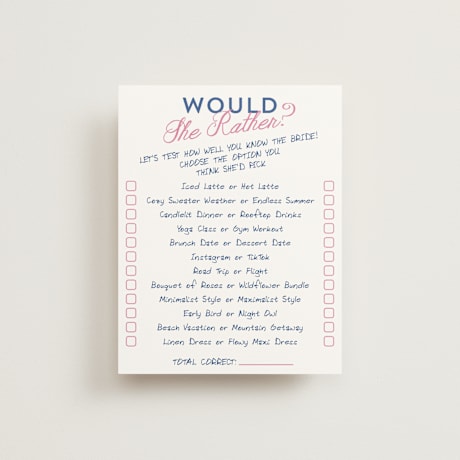 WOULD
She Rather?
LET'S TEST HOW WELL YOU KNOW THE BRIDE!
CHOOSE THE OPTION YOU
THINK SHE'D PICK
Iced Latte or Hot Latte
Cozy Sweater Weather or Endless Summer
Candlelit Dinner or Rooftop Drinks
Yoga Class or Gym Workout
Brunch Date or Dessert Date
Instagram or TikTok
Road Trip or Flight
Bouquet of Roses or Wildflower Bundle
Minimalist Style or Maximalist Style
Early Bird or Night Owl
Beach Vacation or Mountain Getaway
Linen Dress or Flowy Maxi Dress
TOTAL CORRECT: